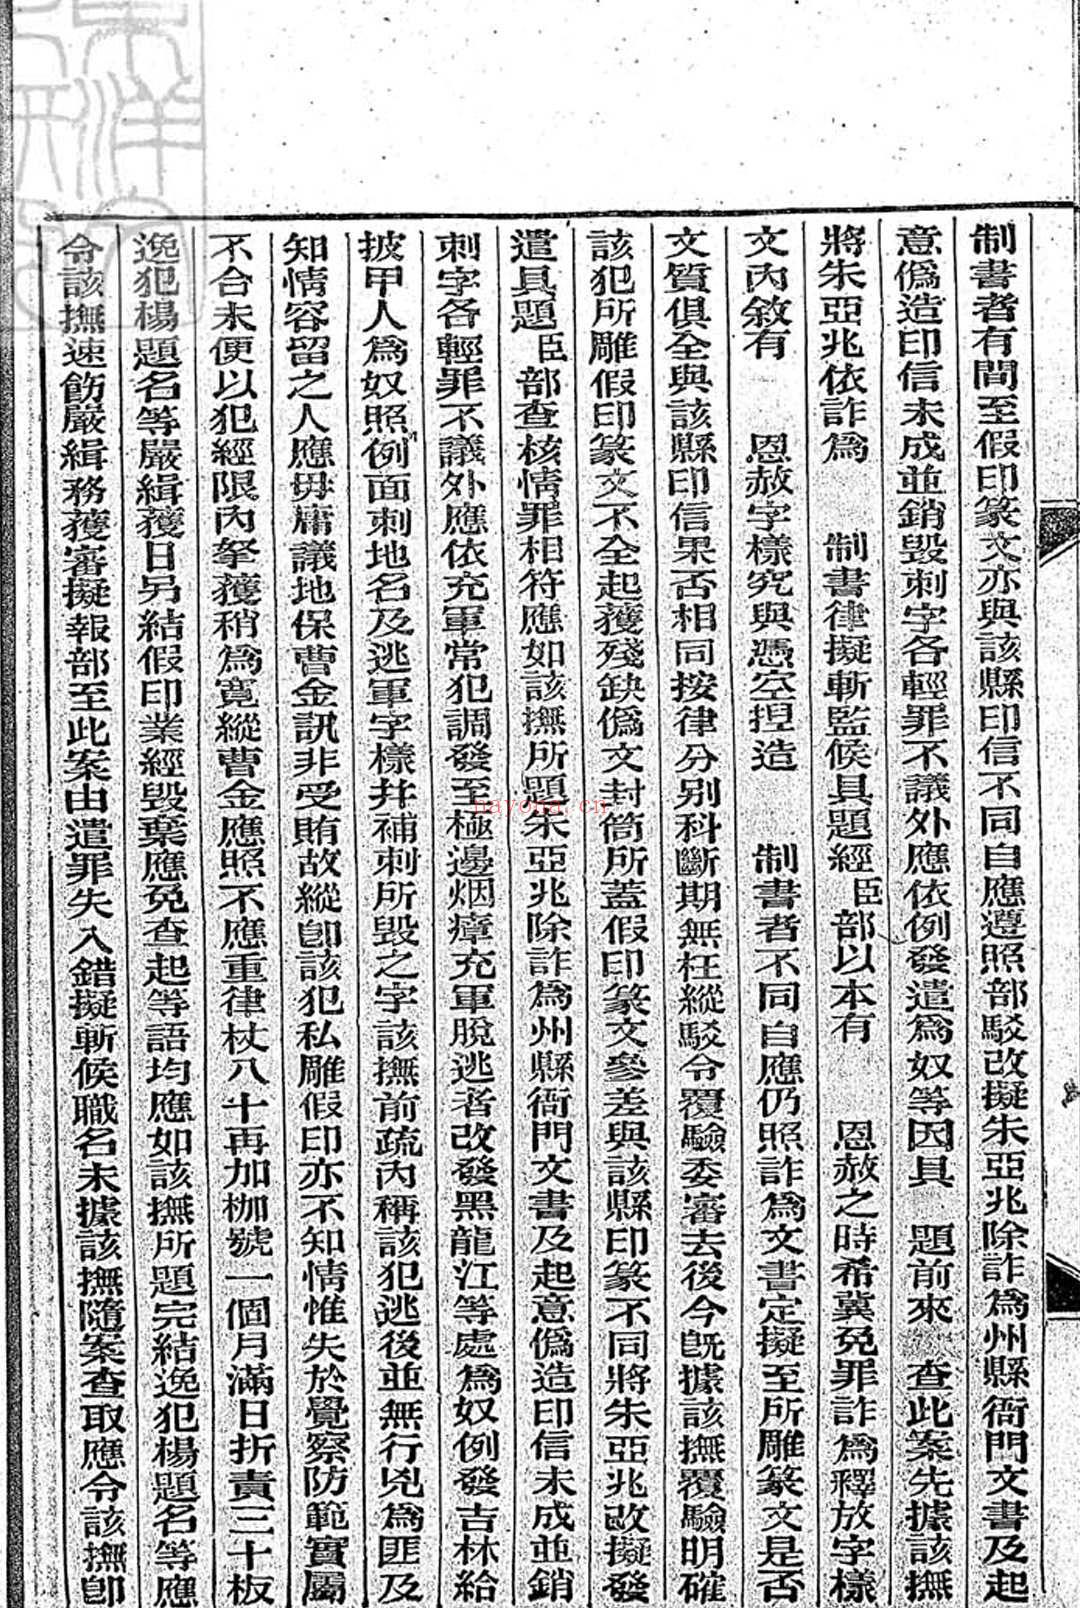 制書者有間至假印篆文亦與該縣印信不同自應遵照部駁改擬朱亞兆除詐為州縣衙門文書及起
意偽造印信未成並銷毀刺字各輕罪不議外應依例發遣為奴等因具　題前來　查此案先據該撫
將朱亞兆依詐為　制書律擬斬監候具題經臣部以本有　恩赦之時希冀免罪詐為釋放字樣
文內敘有　恩赦字樣究與憑空捏造　制書者不同自應仍照詐為文書定擬至所雕篆文是否
文質俱全與該縣印信果否相同按律分別科斷期無枉縱駁令覆驗委審去後今既據該撫覆驗明確
該犯所雕假印篆文不全起獲殘缺偽文封筒所蓋假印篆文參差與該縣印篆不同將朱亞兆改擬發
遣具題臣部查核情罪相符應如該撫所題朱亞兆除詐為州縣衙門文書及起意偽造印信未成並銷
刺字各輕罪不議外應依充軍常犯調發至極邊烟瘴充軍脫逃者改發黑龍江等處為奴例發吉林給
披甲人為奴照例面刺地名及逃軍字樣幷補刺所毀之字該撫前疏內稱該犯逃後並無行兇為匪及
知情容留之人應毋庸議地保曹金訊非受賄故縱卽該犯私雕假印亦不知情惟失於覺察防範實屬
不合未便以犯經限內拏獲稍為寬縱曹金應照不應重律杖八十再加枷號一個月滿日折責三十板
逸犯楊題名等嚴緝獲日另結假印業經毀棄應免查起等語均應如該撫所題完結逸犯楊題名等應
令該撫速飭嚴緝務獲審擬報部至此案由遣罪失入錯擬斬候職名未據該撫隨案查取應令該撫卽
nayona.cn